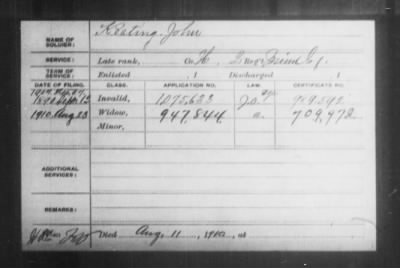 NAME OF SOLDIER: Keating, John
SERVICE: Late rank, Co. H,
TERM OF SERVICE: Enlisted , 1 Discharged , 1
DATE OF FILING. CLASS. APPLICATION NO. LAW. CERTIFICATE NO.
1890 Sept. 12 Invalid, 1075,623
1910, Aug 23 Widow, 947,844, 709,972
Minor,
ADDITIONAL SERVICES:
REMARKS:
Died Aug. 11, 1910, at